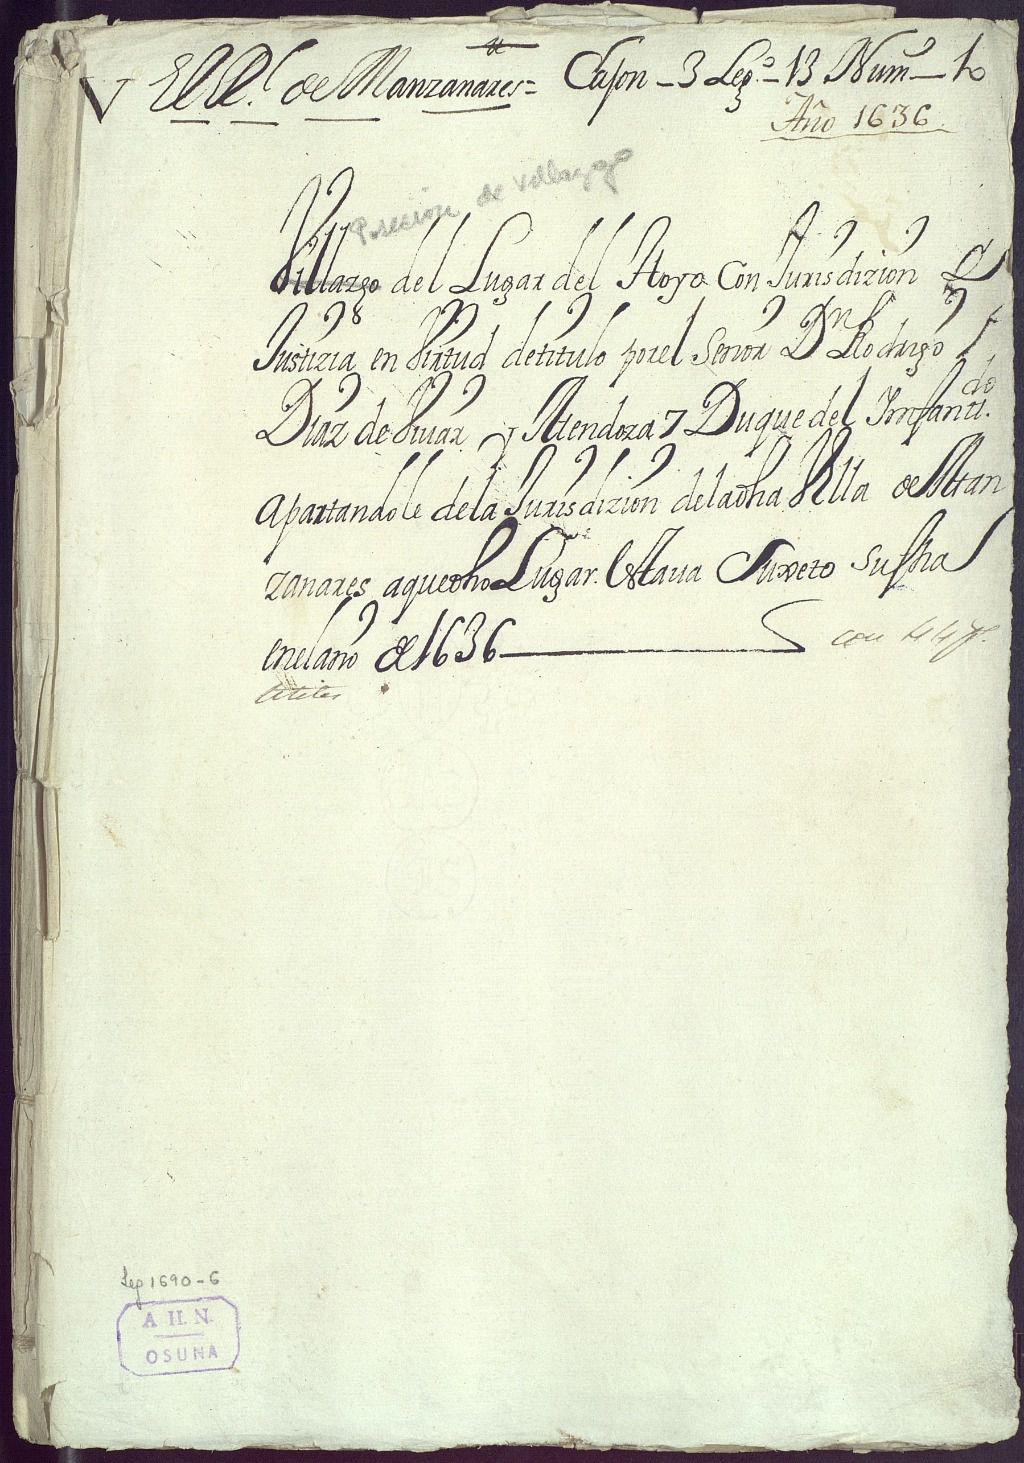 V El Rl. de Manzanares = Cajon - 3 Lego. - 13 Numo - 1o
Año 1636
Posecion de Villazgo
Villazgo del Lugar del Hoyo Con Jurisdizion
Justizia en Virtud detitulo porel Señor Dn Rodrigo
Diaz de Viuar y Mendoza 7 Duque del Infantdo.
apartandole dela Jurisdizion deladha Villa de Man
zanares aquedho Lugar Estaua Suxeto Su fha
enelaño de 1636
Leg 1690-6
A. H. N.
OSUNA